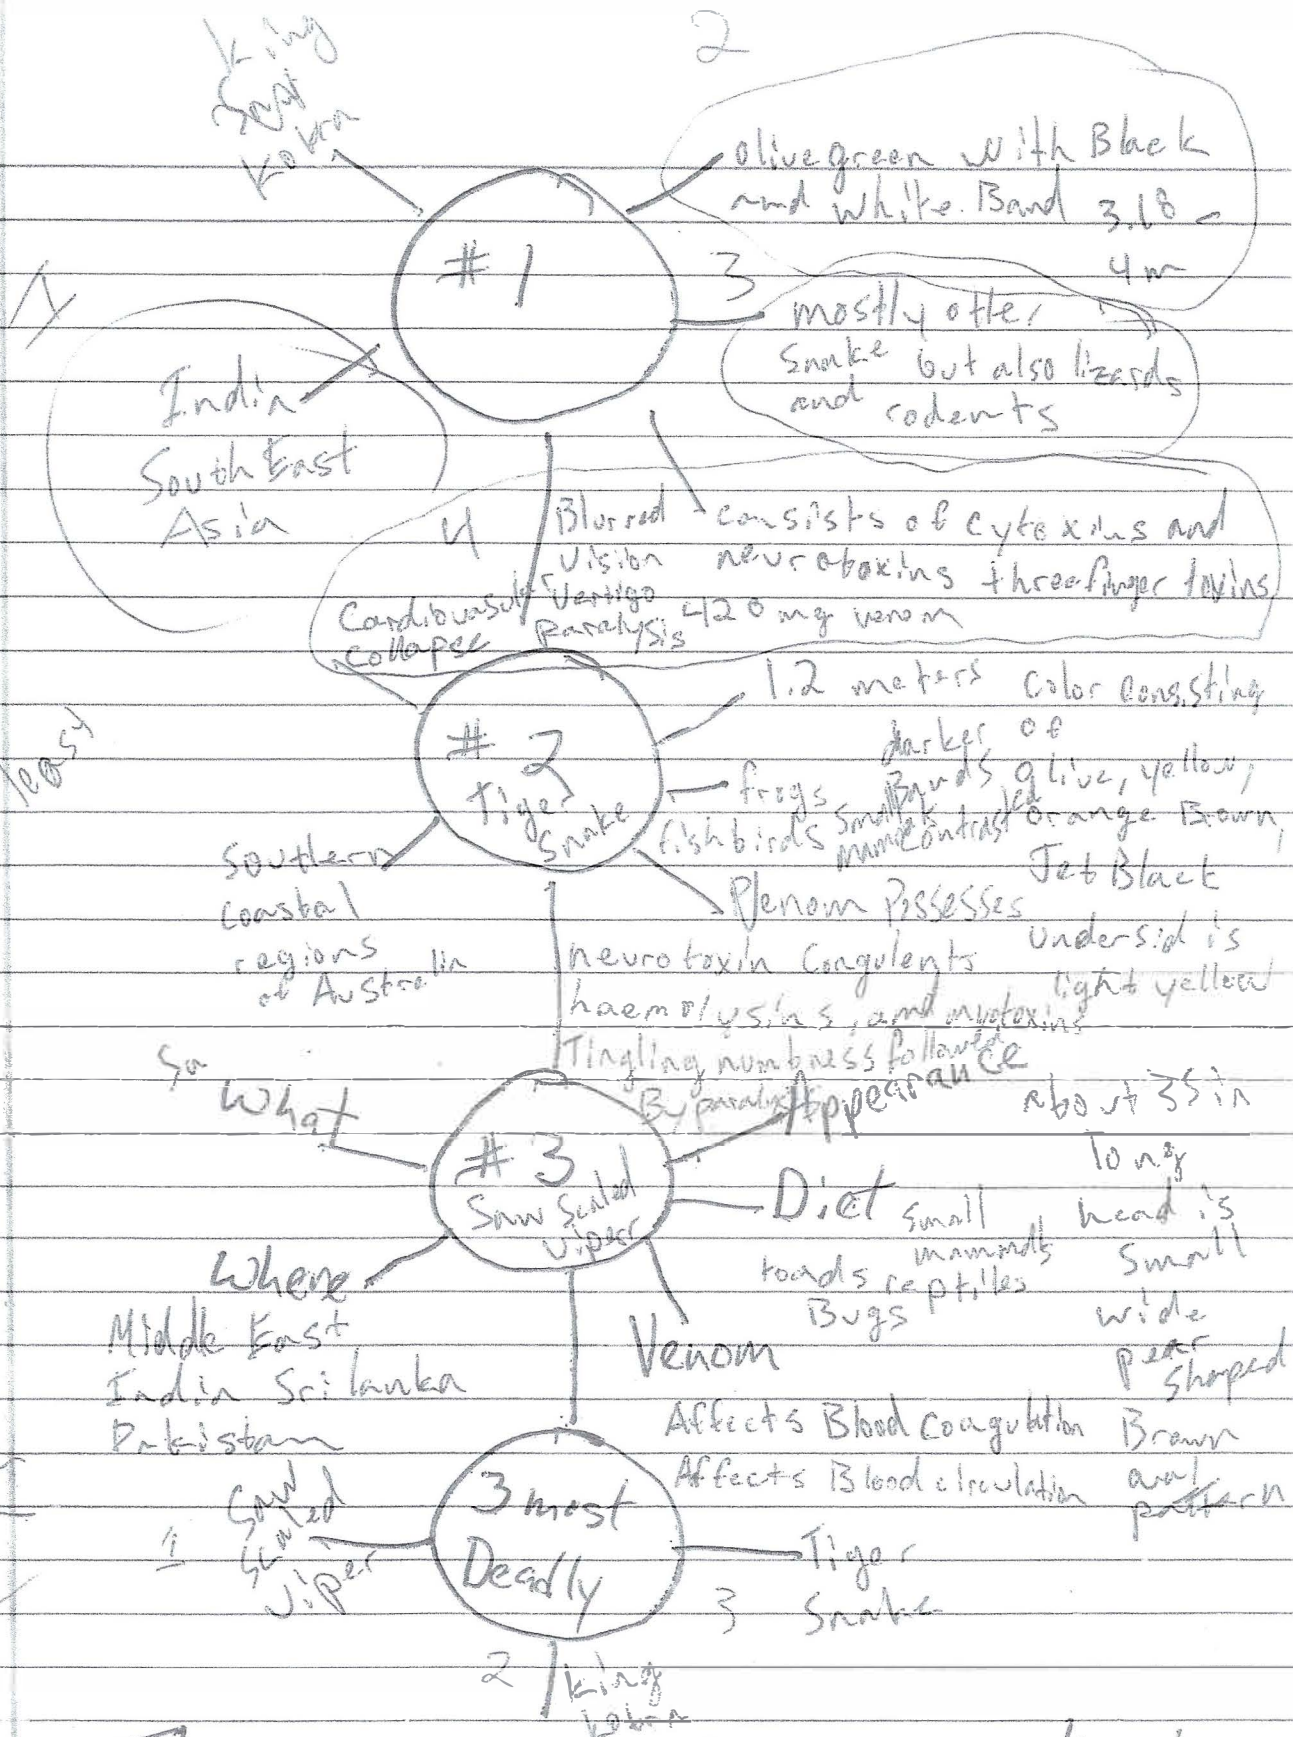 2
king
Kobra
olive green with Black
and white Band 3.18 -
4m
#1
3
1
mostly other
Snake but also lizards
and rodents
India
South East
Asia
4
Blurred
Vision
Vertigo
paralysis
Cardiovasculer
collapse
consists of cytoxins and
neurotoxins threefinger toxins
420 mg venom
#2
Tiger
Snake
1.2 meters
Color consisting
of
olive, yellow,
orange Brown,
Jet Black
undersid is
light yellow
darker
Bands
contrasted
frogs
fish birds small
least
Southern
coastal
regions
of Australia
Venom Possesses
neurotoxin Coagulents
haemolysins, and myotoxins
Tingling numbness followed
By paralysis
Sa
What
#3
Saw Scaled
Viper
Appearance
about 35 in
long
head is
small
wide
pear
shaped
Brown
oval
pattern
Diet
small
mammals
toads reptiles
Bugs
Where
Middle East
India Sri lanka
Pakistan
Venom
Affects Blood Coagulation
Affects Blood circulation
3 most
Deadly
1
Saw
Scaled
Viper
3
Tiger
Snake
2
king
kobra